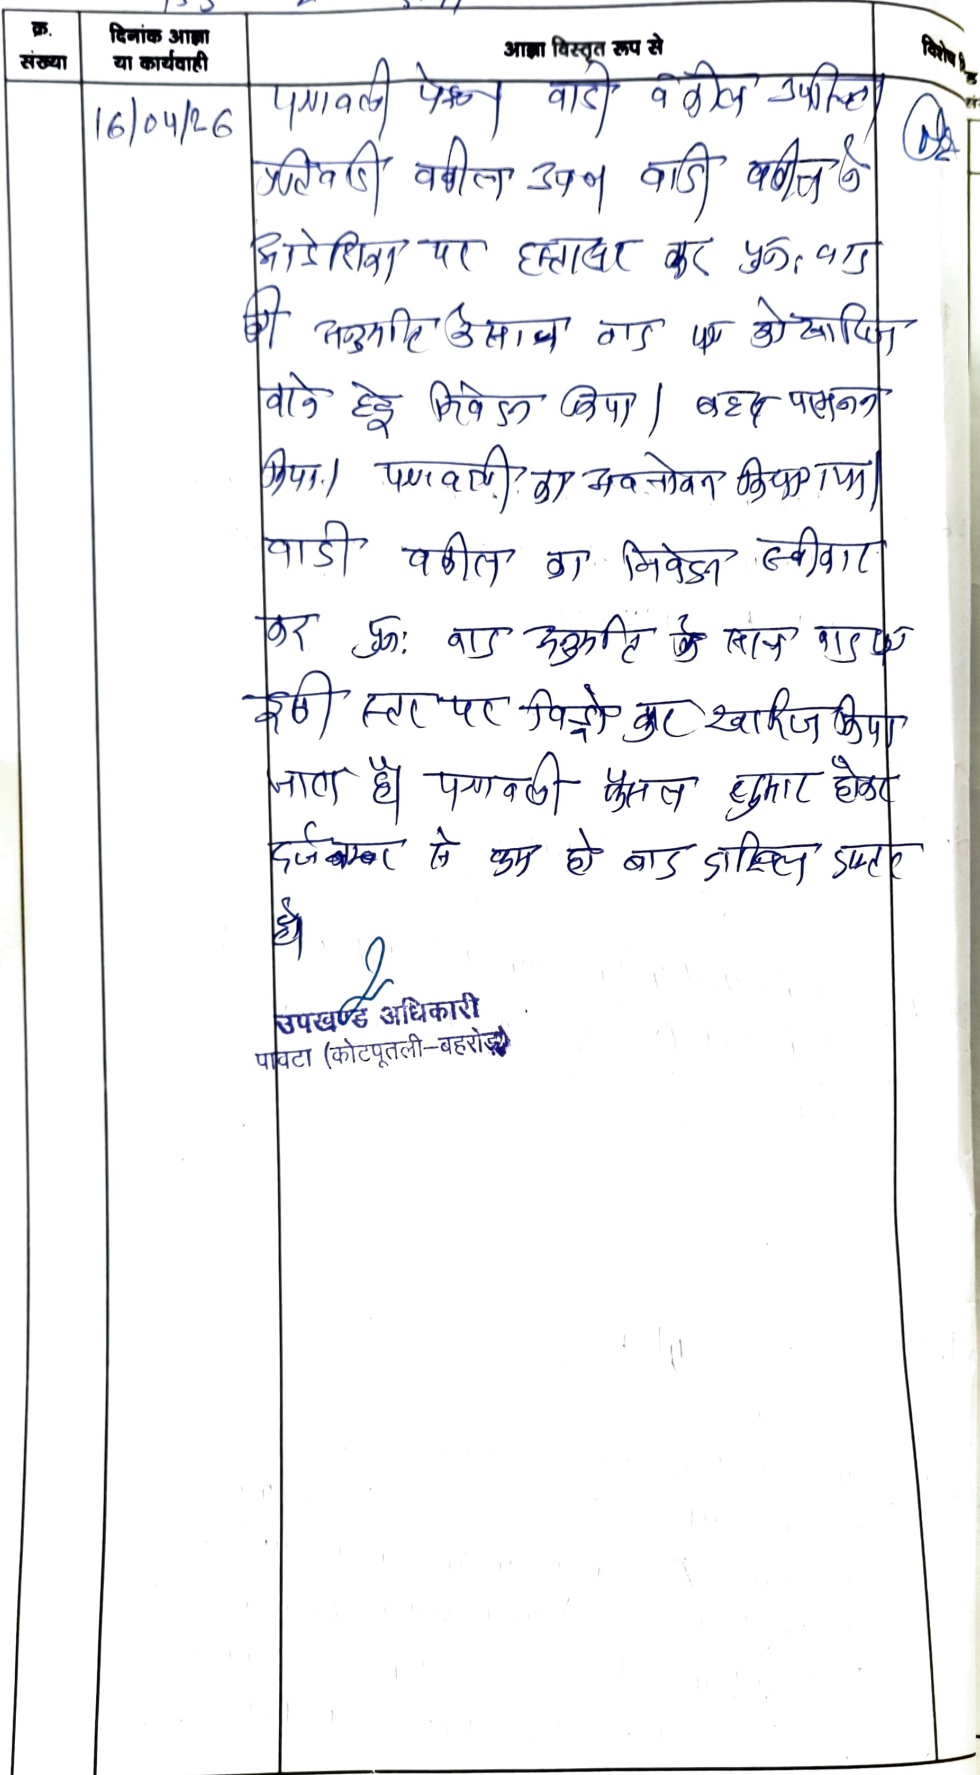 क्र. संख्या
दिनांक आज्ञा या कार्यवाही
आज्ञा विस्तृत रूप से
विशेष
16/04/26
पत्रावली पेश। वादी वकील उपस्थित
प्रतिवादी वकील उप० वादी वकील ने
आदेशिका पर हस्ताक्षर कर पुनः वाद
की अनुमति के साथ वाद पत्र को खारिज
करने हेतु निवेदन किया। बहस
किया। पत्रावली का अवलोकन किया गया।
वादी वकील का निवेदन स्वीकार
कर पुनः वाद अनुमति के साथ वाद पत्र
इसी स्तर पर विड्रो कर खारिज किया
जाता है। पत्रावली फैसल शुमार होकर
दर्ज नम्बर से कम हो बाद दाखिल दफ्तर
हो।
उपखण्ड अधिकारी
पावटा (कोटपूतली-बहरोड़)